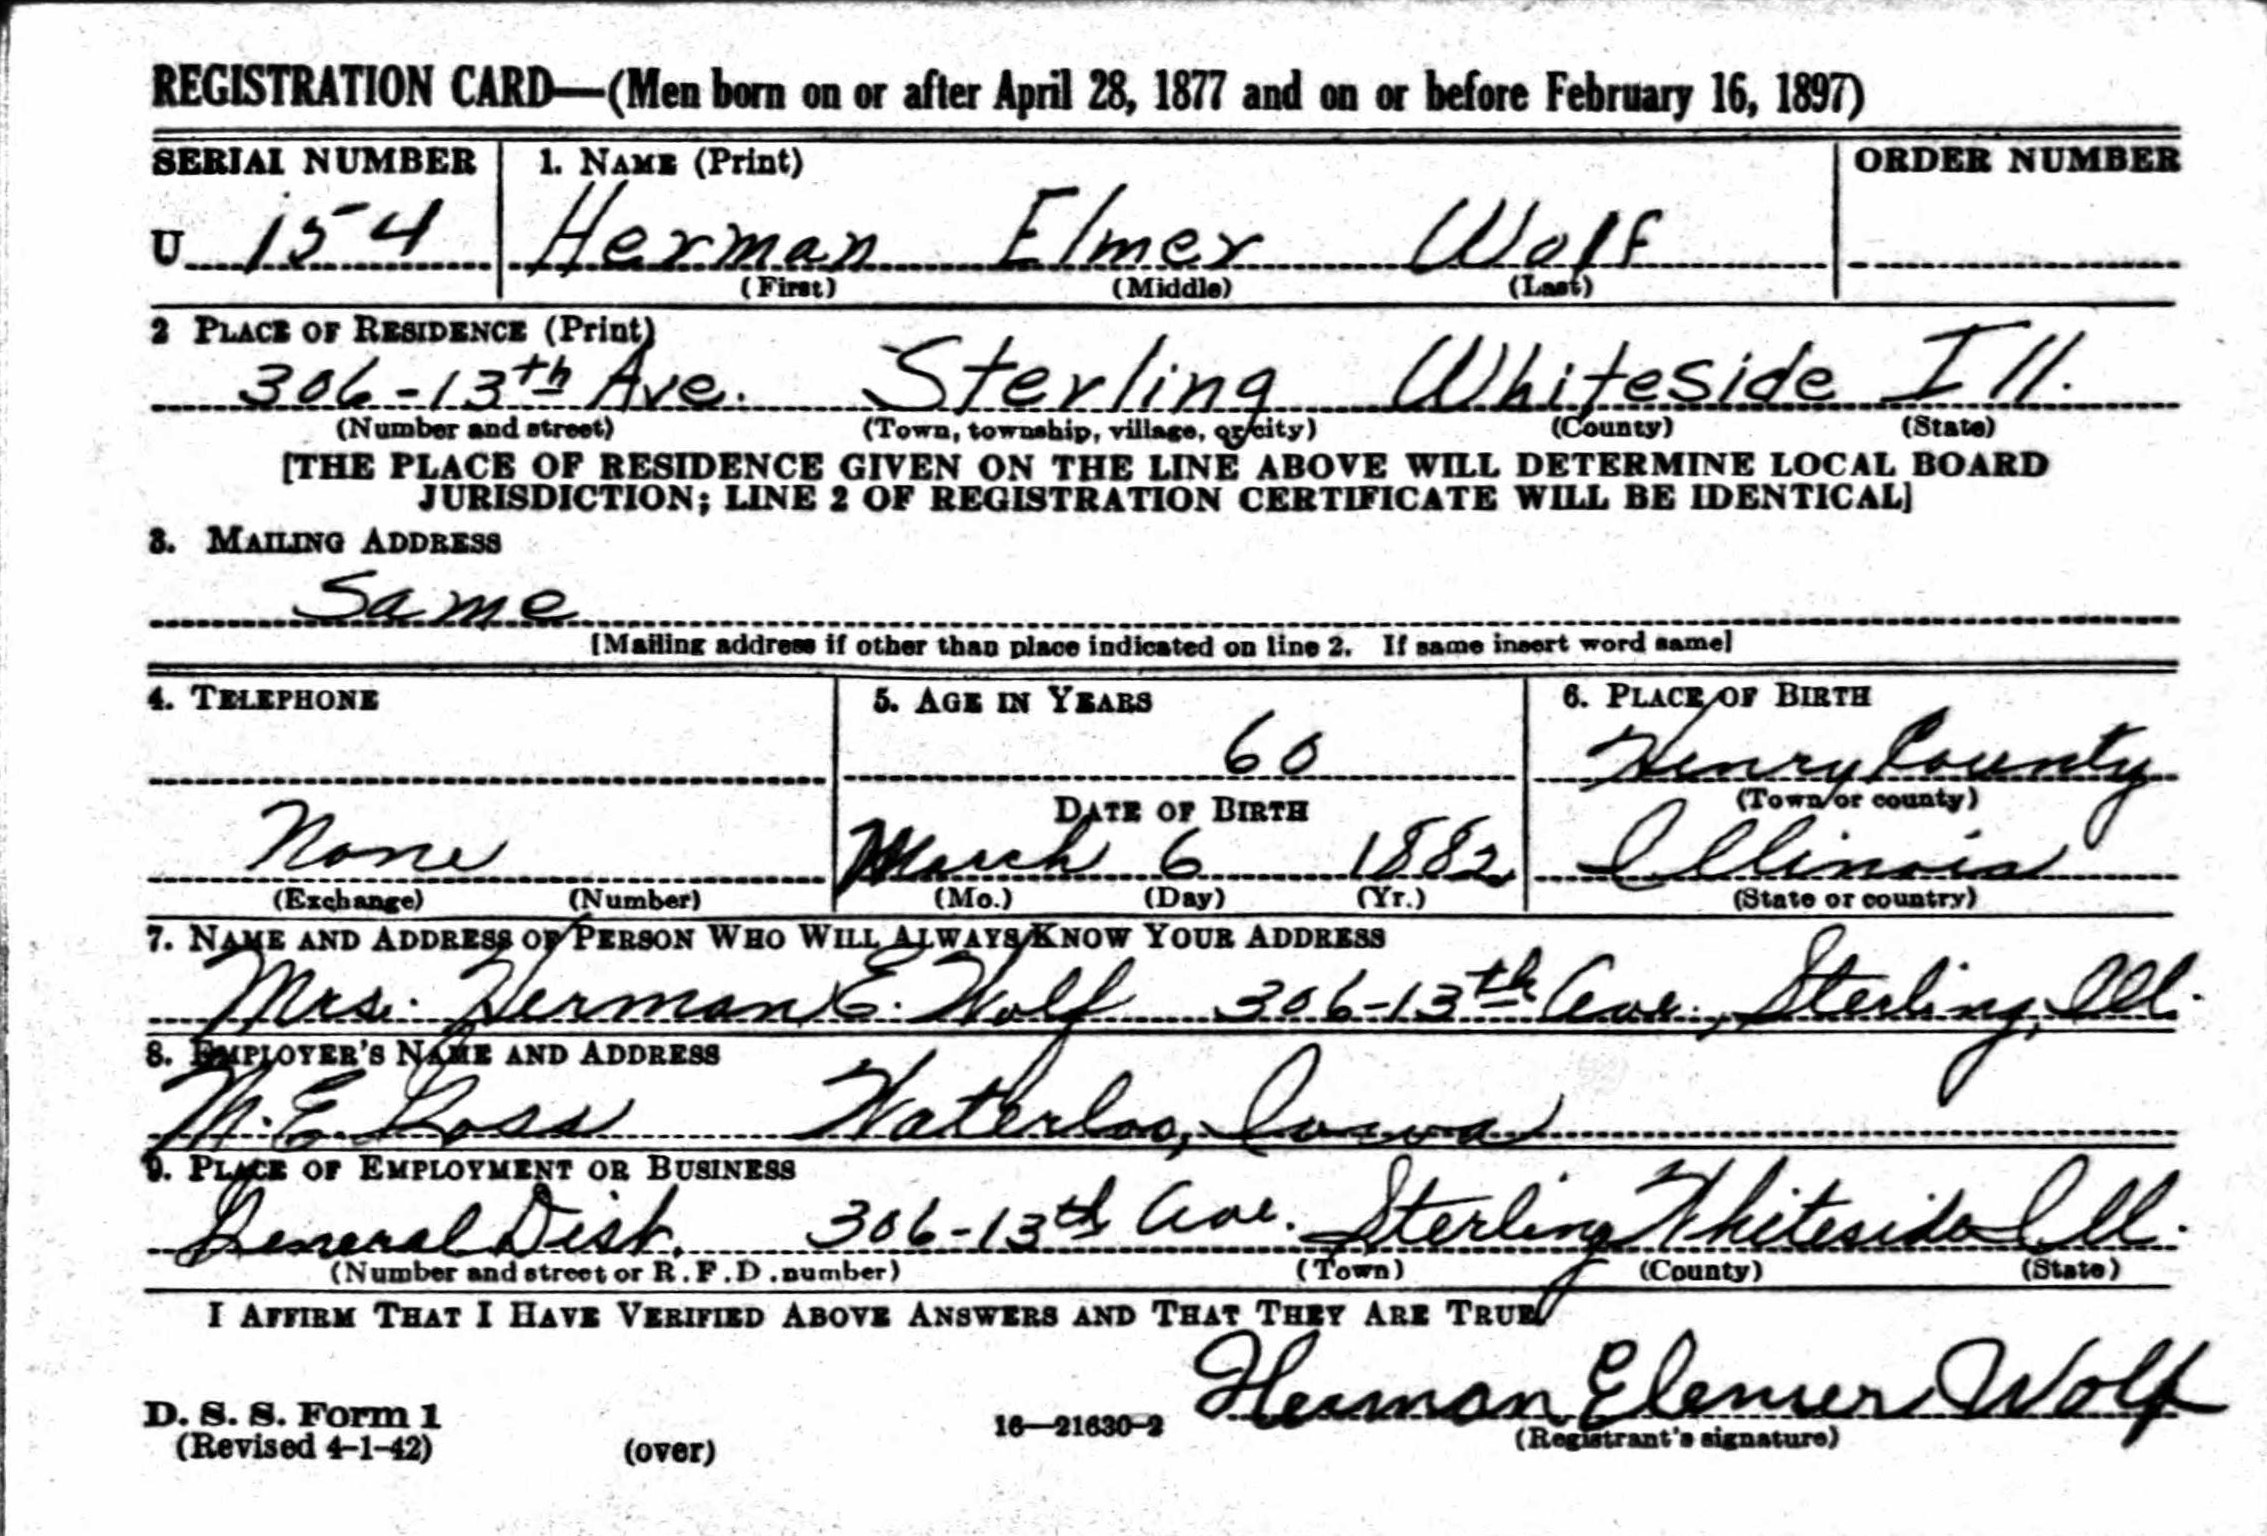 REGISTRATION CARD—(Men born on or after April 28, 1877 and on or before February 16, 1897)
SERIAL NUMBER 1. NAME (Print) ORDER NUMBER
U 154 Herman Elmer Wolf
(First) (Middle) (Last)
2 PLACE OF RESIDENCE (Print)
306-13th Ave. Sterling Whiteside Ill.
(Number and street) (Town, township, village, or city) (County) (State)
[THE PLACE OF RESIDENCE GIVEN ON THE LINE ABOVE WILL DETERMINE LOCAL BOARD
JURISDICTION; LINE 2 OF REGISTRATION CERTIFICATE WILL BE IDENTICAL]
3. MAILING ADDRESS
Same
[Mailing address if other than place indicated on line 2. If same insert word same]
4. TELEPHONE 5. AGE IN YEARS 6. PLACE OF BIRTH
60 Henry County
DATE OF BIRTH (Town or county)
None March 6 1882 Illinois
(Exchange) (Number) (Mo.) (Day) (Yr.) (State or country)
7. NAME AND ADDRESS OF PERSON WHO WILL ALWAYS KNOW YOUR ADDRESS
Mrs. Herman E. Wolf 306-13th Ave., Sterling, Ill.
8. EMPLOYER'S NAME AND ADDRESS
Waterloo, Iowa
9. PLACE OF EMPLOYMENT OR BUSINESS
General Dist. 306-13th Ave. Sterling Whiteside Ill.
(Number and street or R.F.D. number) (Town) (County) (State)
I AFFIRM THAT I HAVE VERIFIED ABOVE ANSWERS AND THAT THEY ARE TRUE
Herman Elemer Wolf
D. S. S. Form 1
(Revised 4-1-42) (over) 16—21630-2 (Registrant's signature)